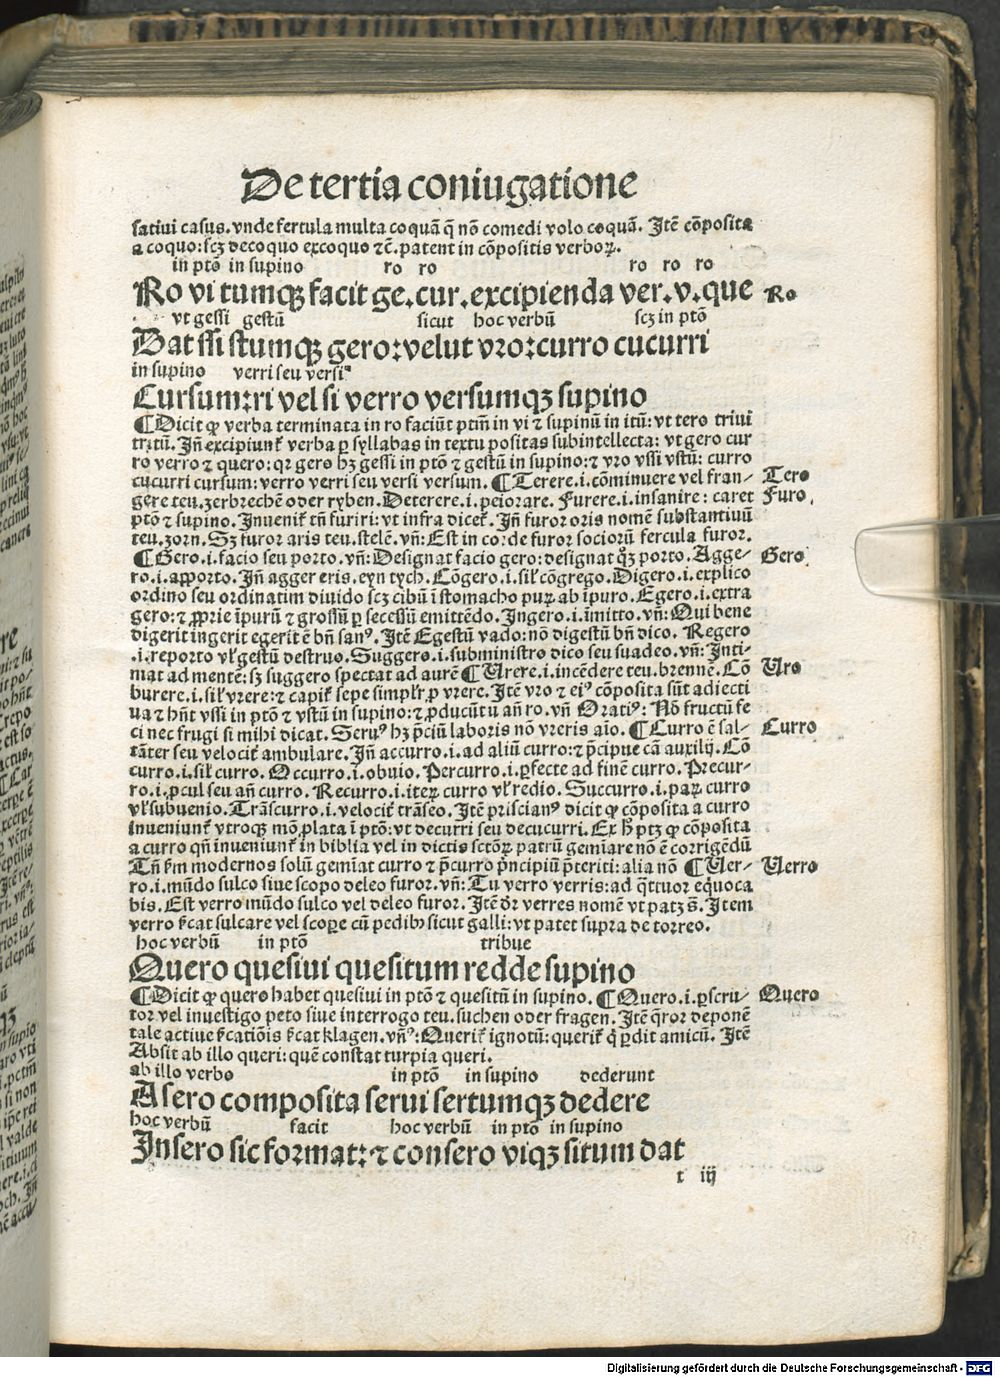 De tertia coniugatione
sativi casus. vnde fercula multa coquã q̃ nõ comedi volo coquã. Itẽ cõposita
a coquo: scꝫ decoquo excoquo ⁊cẽ. patent in cõpositis verboꝝ.
in ptõ in supino ro ro ro ro ro
Ro vi tumqꝫ facit ge. cur. excipienda ver. v. que Ro
vt gessi gestũ sicut hoc verbũ scꝫ in ptõ
Dat ssi stumqꝫ gero: velut vro: curro cucurri
in supino verri seu versi
Cursum: ri vel si verro versumqꝫ supino
¶Dicit ꝙ verba terminata in ro faciũt ptm̃ in vi ⁊ supinũ in itũ: vt tero triui
tritũ. Iñ excipiunt᷑ verba ꝑ syllabas in textu positas subintellecta: vt gero cur
ro verro ⁊ quero: qꝛ gero hꝫ gessi in ptõ ⁊ gestũ in supino: ⁊ vro vssi vstũ: curro
cucurri cursum: verro verri seu versi versum. ¶Terere .i. cõminuere vel fran- Tero
gere teu. zerbrechẽ oder ryben. Deterere .i. peiorare. Furere .i. insanire: caret Furo.
ptõ ⁊ supino. Invenit᷑ tñ furiri: vt infra dicet᷑. Iñ furor oris nomẽ substantiuũ
teu. zorn. Sꝫ furor aris teu. stelẽ. vñ: Est in corde furor sociorũ fercula furor.
¶Gero .i. facio seu porto. vñ: Designat facio gero: designat qͦꝫ porto. Agge- Gero.
ro .i. apporto. Iñ agger eris. eyn tych. Cõgero .i. sil᷑ cõgrego. Digero .i. explico
ordino seu ordinatim diuido scꝫ cibũ ĩ stomacho puꝝ ab ĩpuro. Egero .i. extra
gero: ⁊ ꝓprie ĩpurũ ⁊ grossũ ꝑ secessũ emittẽdo. Ingero .i. ĩmitto. vñ: Qui bene
digerit ingerit egerit ẽ bñ sanꝰ. Itẽ Egestũ vado: nõ digestũ bñ dico. Regero
.i. reporto vl᷑ gestũ destruo. Suggero .i. subministro dico seu suadeo. vñ: Inti-
mat ad mentẽ: sꝫ suggero spectat ad aurẽ ¶Urere .i. incẽdere teu. brennẽ. Cõ Uro
burere .i. sil᷑ vrere: ⁊ capit᷑ sepe simplr̃ ꝓ vrere. Itẽ vro ⁊ eiꝰ cõposita sũt adiecti
ua ⁊ hñt vssi in ptõ ⁊ vstũ in supino: ⁊ ꝓducũt u añ ro. vñ Oratiꝰ: Nõ fructũ fe
ci nec frugi si mihi dicat. Seruꝰ hꝫ p̃ciũ laboris nõ vreris aio. ¶Curro ẽ sal- Curro
tãter seu velocit᷑ ambulare. Iñ accurro .i. ad aliũ curro: ⁊ p̃cipue cã auxilij. Cõ
curro .i. sil᷑ curro. Occurro .i. obuio. Percurro .i. ꝑfecte ad finẽ curro. Precur-
ro .i. ꝓcul seu añ curro. Recurro .i. iteꝝ curro vl᷑ redio. Succurro .i. paꝝ curro
vl᷑ subuenio. Trãscurro .i. velocit᷑ trãseo. Itẽ priscianꝰ dicit ꝙ cõposita a curro
inueniunt᷑ vtroqꝫ mõ ꝓlata ĩ ptõ: vt decurri seu decucurri. Ex hͦ ptꝫ ꝙ cõposita
a curro qñ inueniunt᷑ in biblia vel in dictis sctõꝝ patrũ gemĩare nõ ẽ corrigẽdũ
Tñ ẜm modernos solũ gemĩat curro ⁊ p̃curro p̃ncipiũ p̃teriti: alia nõ ¶Uer- Uerro
ro .i. mũdo sulco siue scopo deleo furor. vñ: Tu verro verris: ad q̃ttuor equoca
bis. Est verro mũdo sulco vel deleo furor. Itẽ dr̃ verres nomẽ vt patꝫ s̃. Item
verro ẜcat sulcare vel scope cũ pedibꝰ sicut galli: vt patet supra de torreo.
hoc verbũ in ptõ tribue
Quero quesiui quesitum redde supino
¶Dicit ꝙ quero habet quesiui in ptõ ⁊ quesitũ in supino. ¶Quero .i. ꝑscru- Quero
tor vel inuestigo peto siue interrogo teu. suchen oder fragen. Itẽ q̃ror deponẽ
tale actiue ẜcatiõis ẜcat klagen. vñ: Querit᷑ ignotũ: querit᷑ q̃ ꝑdit amicũ. Itẽ
Absit ab illo queri: quẽ constat turpia queri.
ab illo verbo in ptõ in supino dederunt
A sero composita serui sertumqꝫ dedere
hoc verbũ facit hoc verbũ in ptõ in supino
Insero sic format: ⁊ consero viqꝫ situm dat
t iij
Digitalisierung gefördert durch die Deutsche Forschungsgemeinschaft - DFG